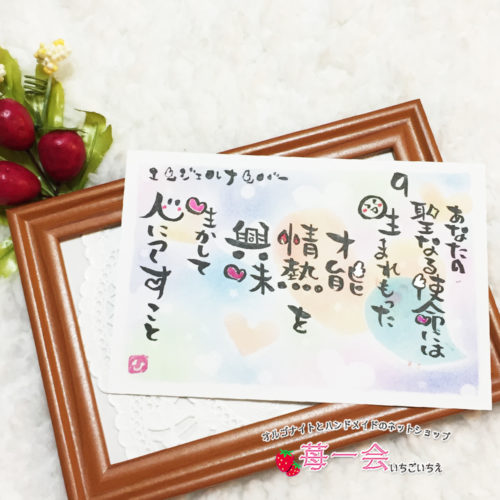 エンジェルナンバー
9
あなたの
聖なる使命には
生まれもった
才能
情熱を
興味
生かして
人につくすこと
オルゴナイトとハンドメイドのネットショップ
苺一会いちごいちえ